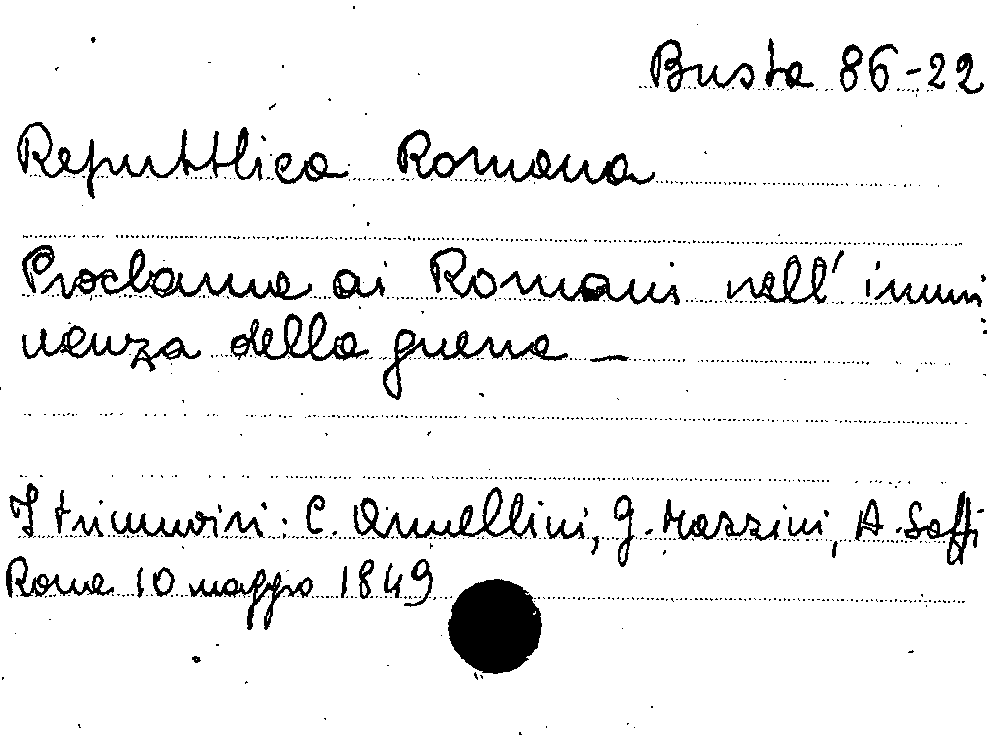 Busta 86-22
Repubblica Romana
Proclama ai Romani nell'immi
nenza della guerra –
I triumviri: C. Armellini, G. Mazzini, A. Saffi
Roma 10 maggio 1849